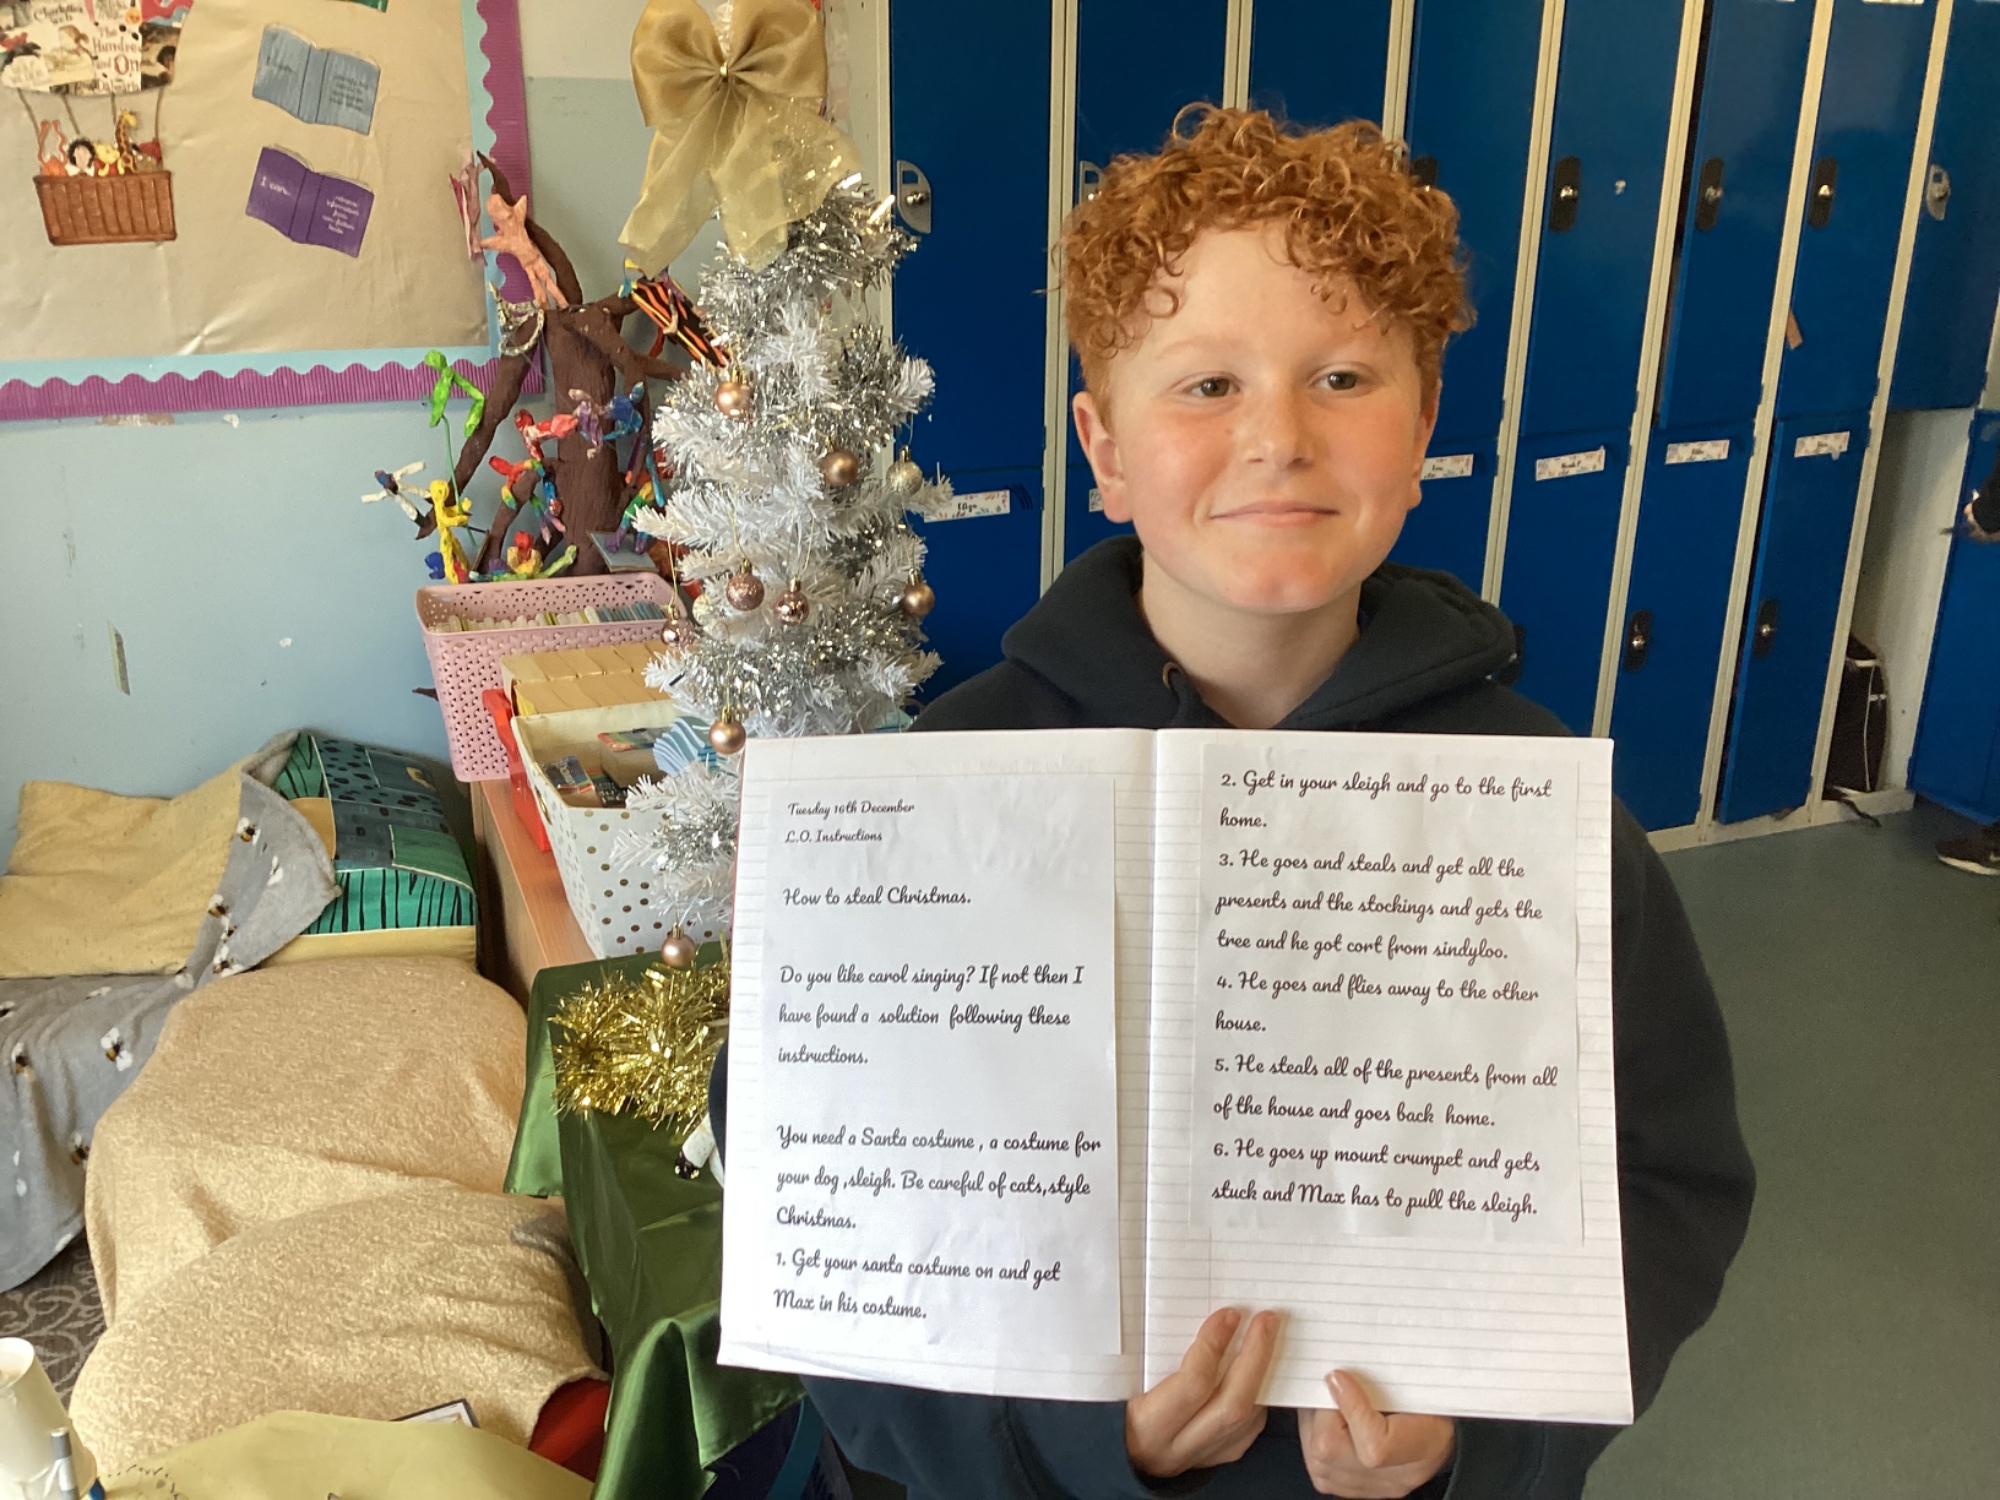 The
Hundred
and One
Dalmatians
I can...
Tuesday 16th December
L.O. Instructions
How to steal Christmas.
Do you like carol singing? If not then I
have found a solution following these
instructions.
You need a Santa costume , a costume for
your dog ,sleigh. Be careful of cats,style
Christmas.
1. Get your santa costume on and get
Max in his costume.
2. Get in your sleigh and go to the first
home.
3. He goes and steals and get all the
presents and the stockings and gets the
tree and he got cort from sindyloo.
4. He goes and flies away to the other
house.
5. He steals all of the presents from all
of the house and goes back home.
6. He goes up mount crumpet and gets
stuck and Max has to pull the sleigh.